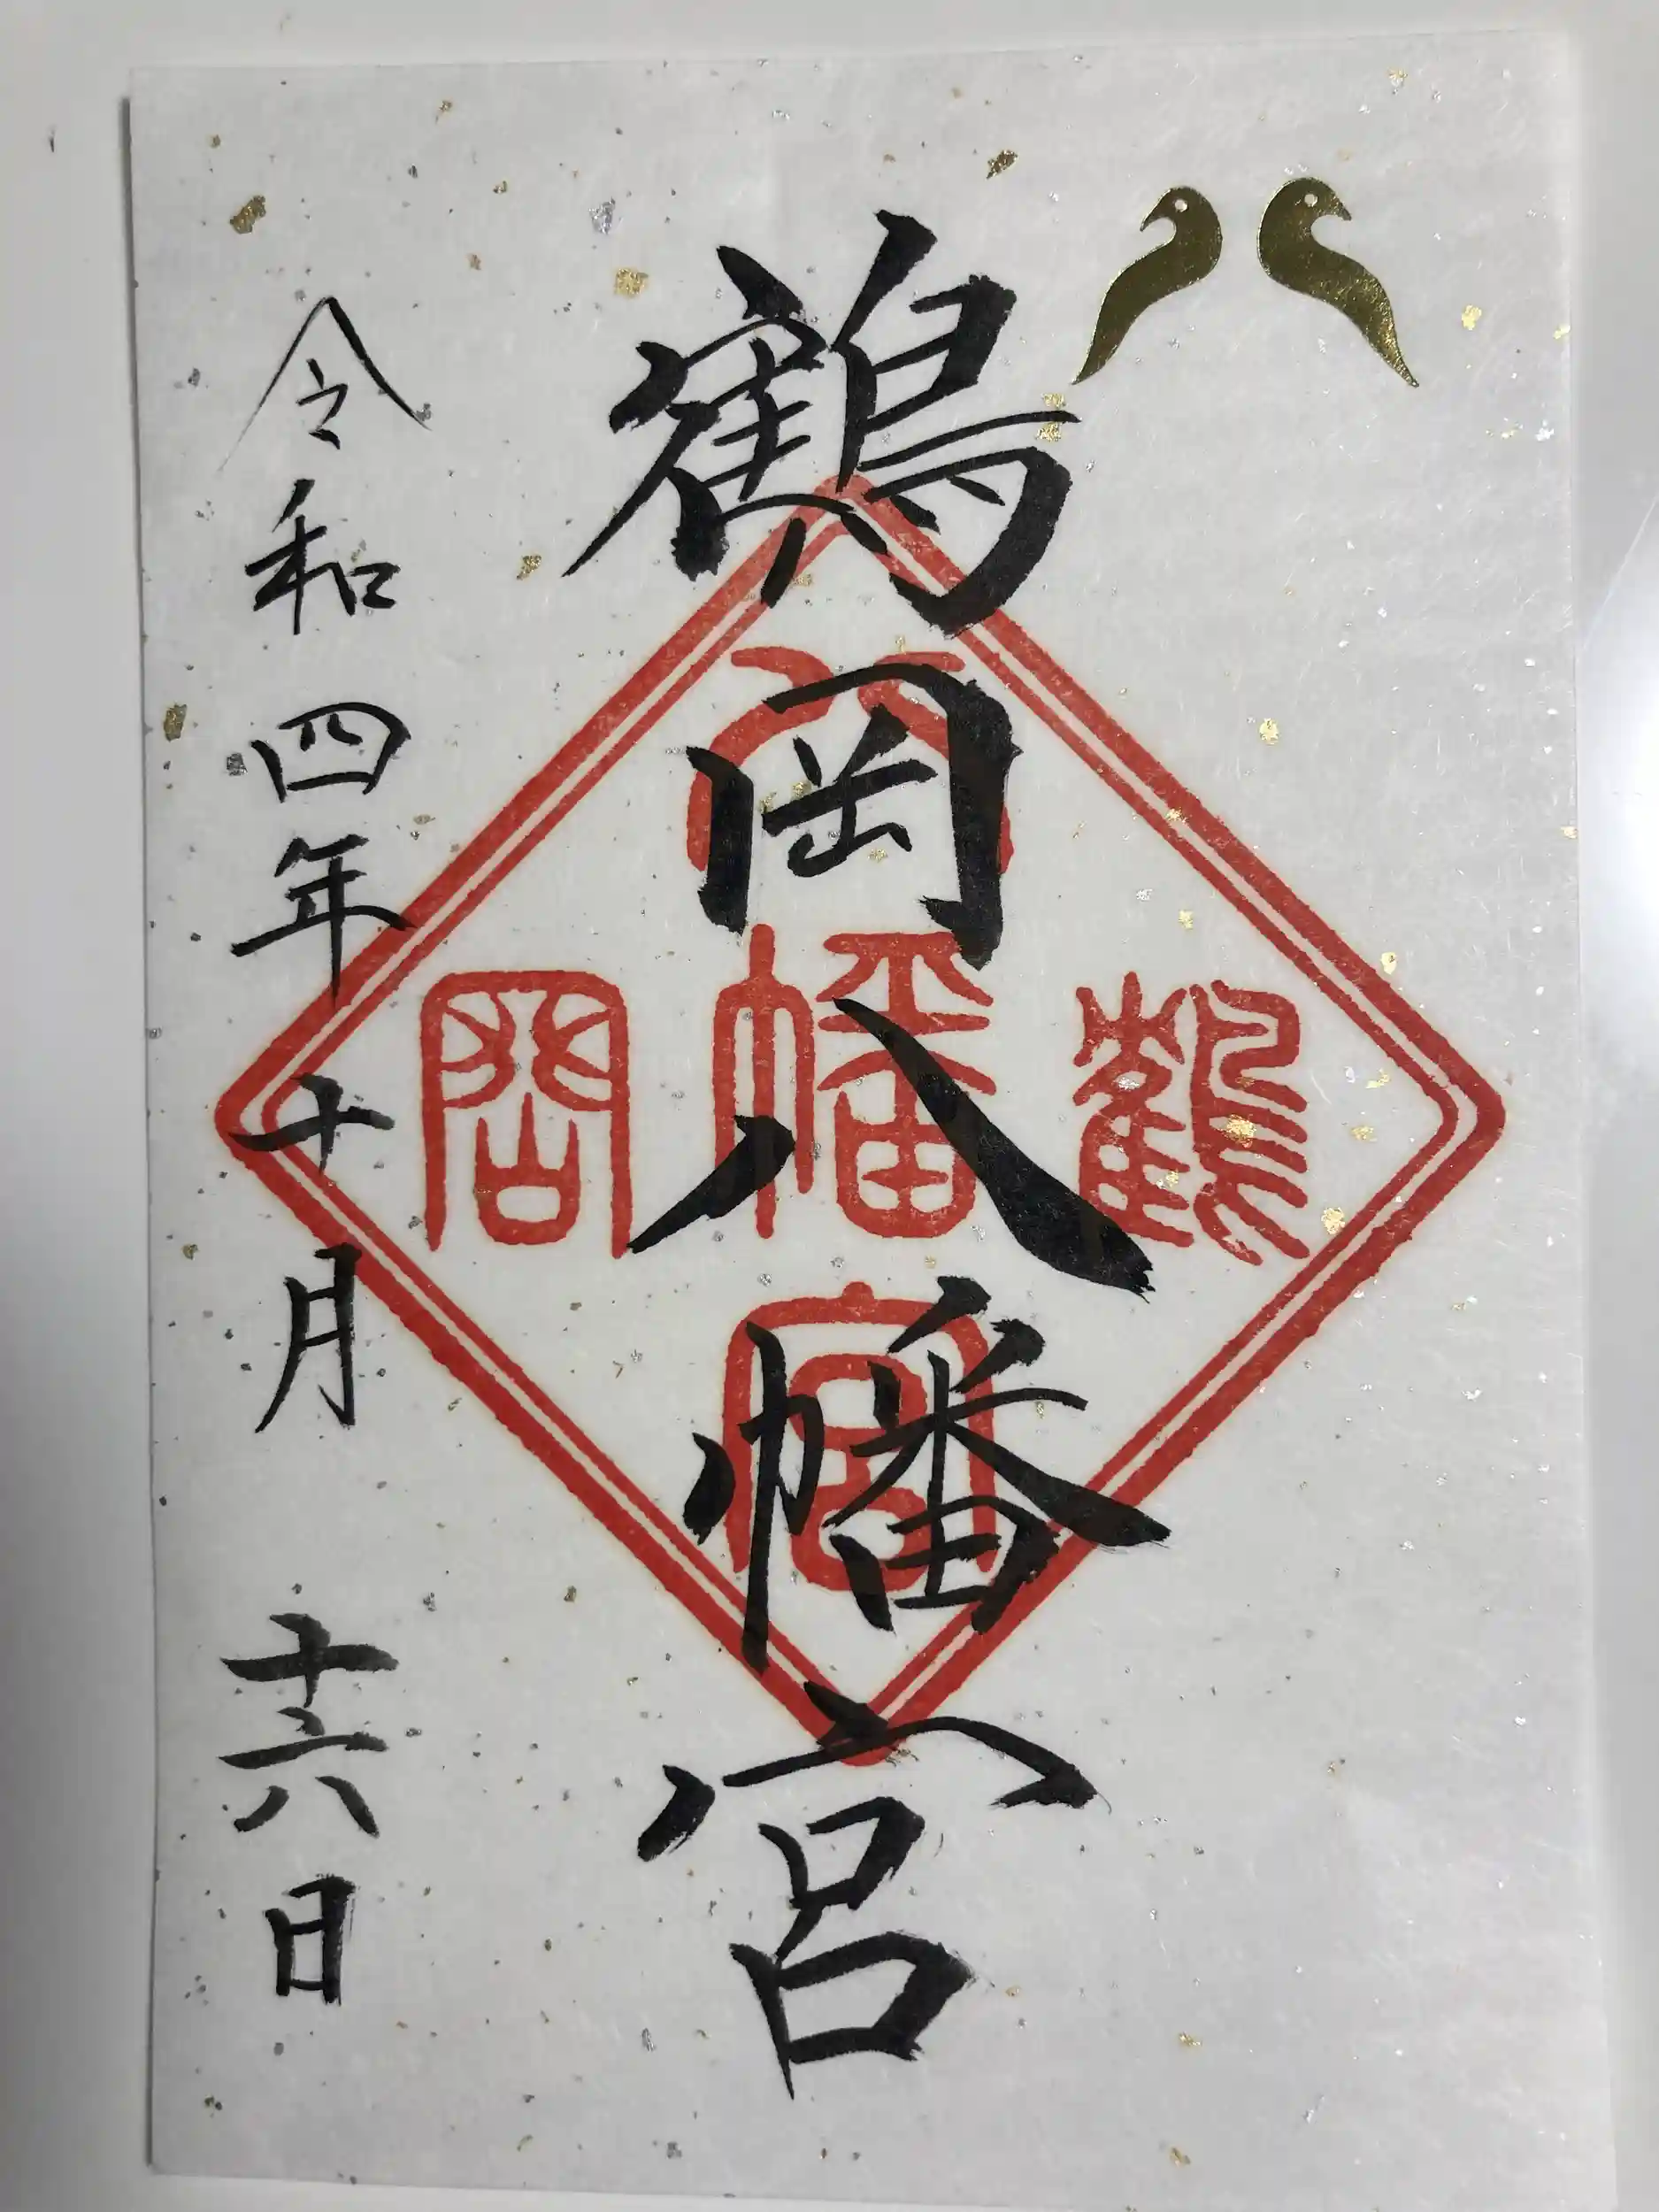 鶴岡八幡宮
鶴
八
幡
宮
岡
令和四年十月十六日